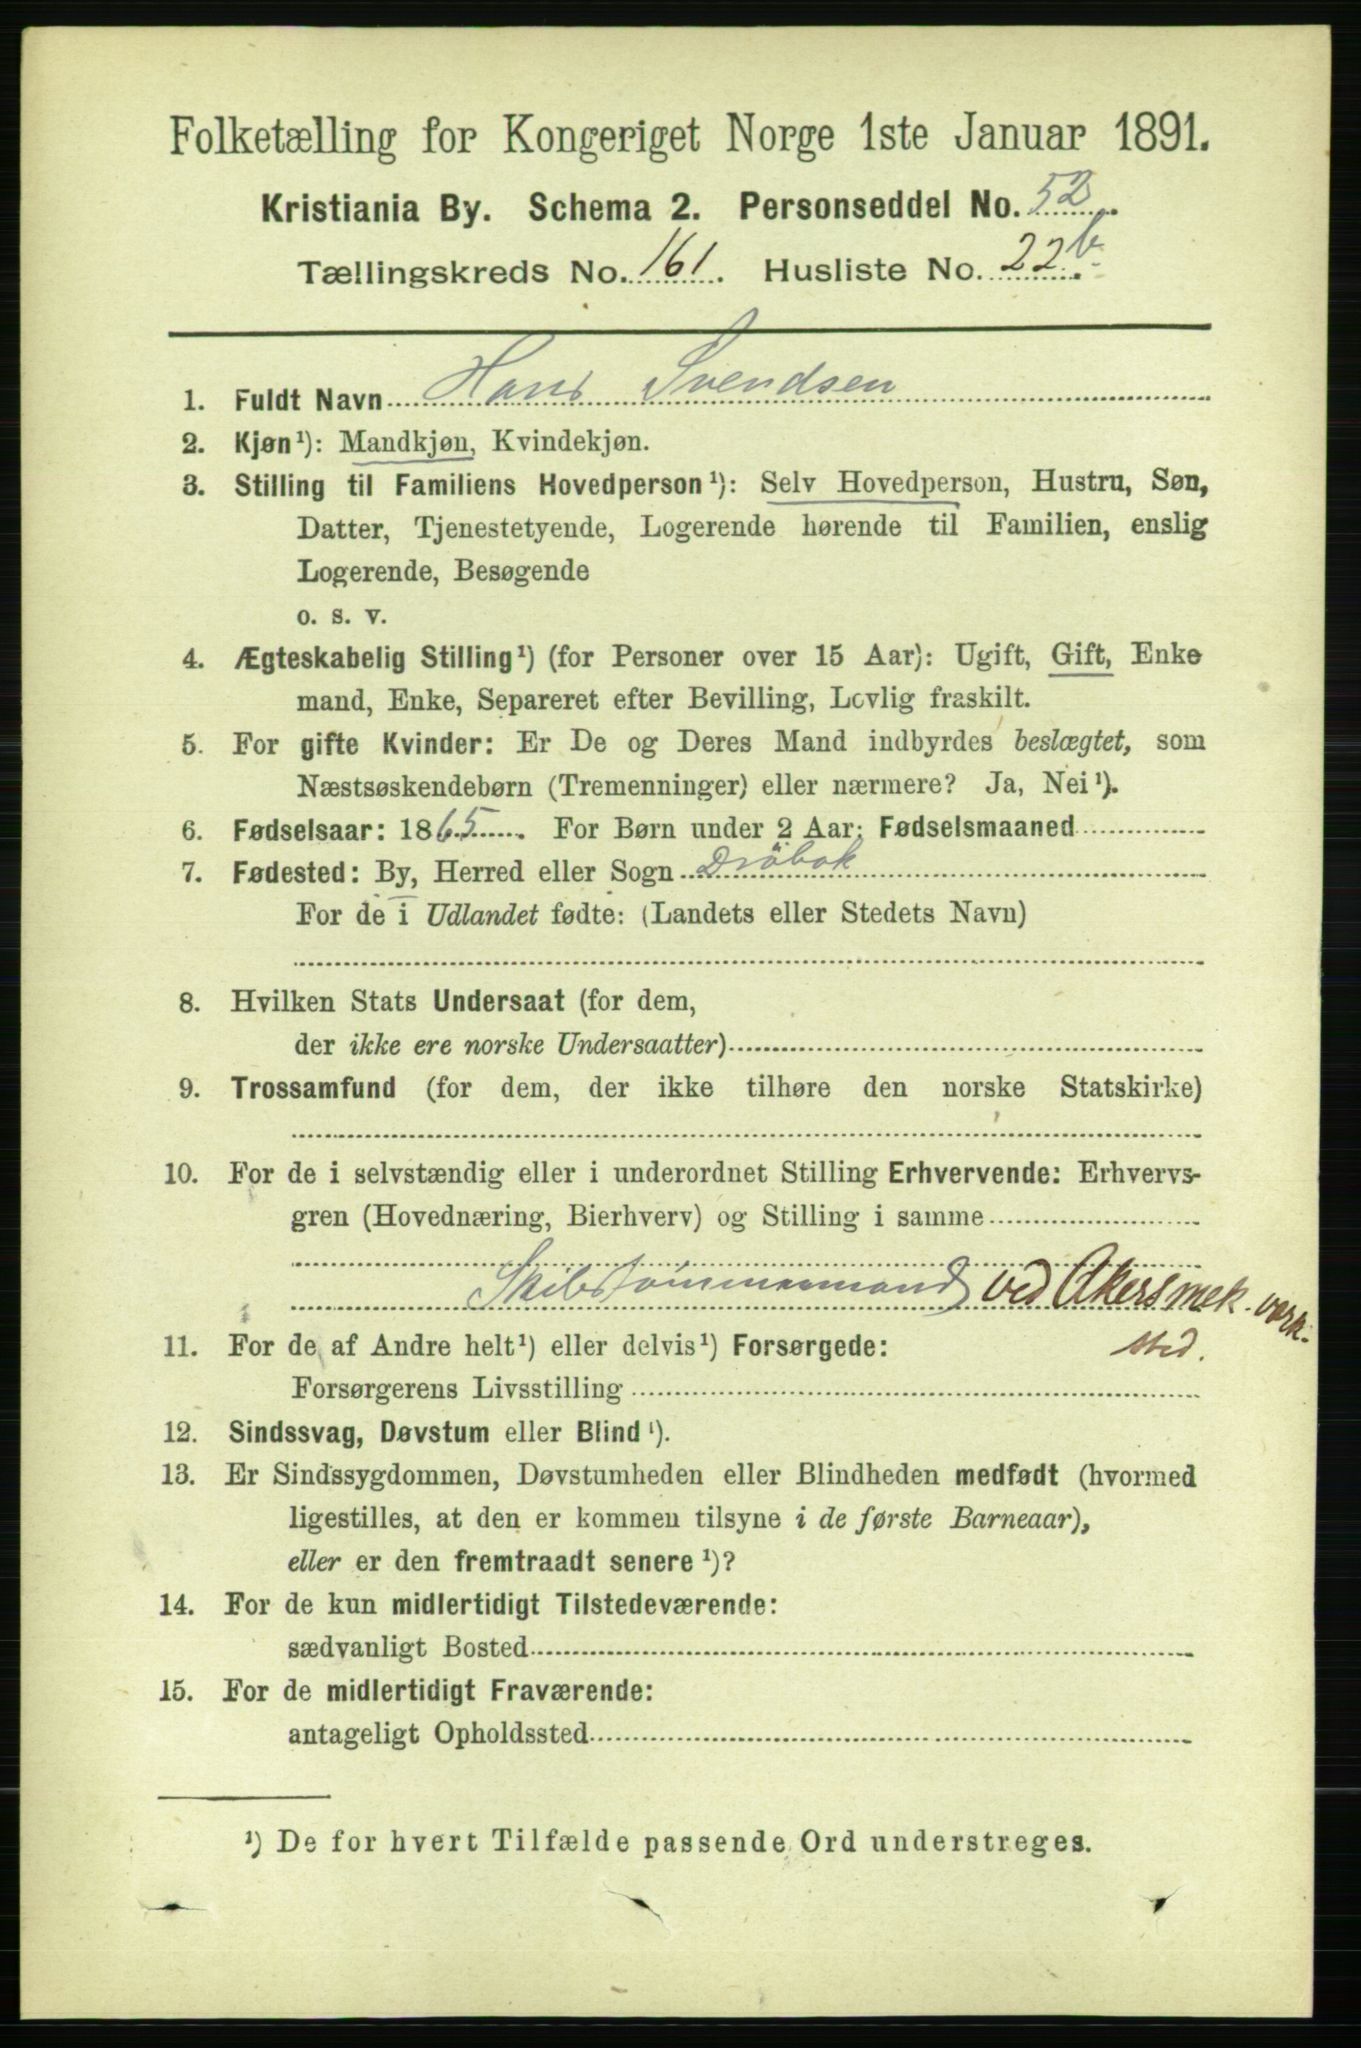 Folketælling for Kongeriget Norge 1ste Januar 1891.
Kristiania By. Schema 2. Personseddel No. 52
Tællingskreds No. 161. Husliste No. 22b.
1. Fuldt Navn Hans Svendsen
2. Kjøn¹): Mandkjøn, Kvindekjøn.
3. Stilling til Familiens Hovedperson¹): Selv Hovedperson, Hustru, Søn,
Datter, Tjenestetyende, Logerende hørende til Familien, enslig
Logerende, Besøgende
o. s. v.
4. Ægteskabelig Stilling¹) (for Personer over 15 Aar): Ugift, Gift, Enke
mand, Enke, Separeret efter Bevilling, Lovlig fraskilt.
5. For gifte Kvinder: Er De og Deres Mand indbyrdes beslægtet, som
Næstsøskendebørn (Tremenninger) eller nærmere? Ja, Nei¹).
6. Fødselsaar: 1865. For Børn under 2 Aar: Fødselsmaaned
7. Fødested: By, Herred eller Sogn Dröbak
For de i Udlandet fødte: (Landets eller Stedets Navn)
8. Hvilken Stats Undersaat (for dem,
der ikke ere norske Undersaatter)
9. Trossamfund (for dem, der ikke tilhøre den norske Statskirke)
10. For de i selvstændig eller i underordnet Stilling Erhvervende: Erhvervs-
gren (Hovednæring, Bierhverv) og Stilling i samme
Skibstömmermand ved Akers mek. værk-
sted.
11. For de af Andre helt¹) eller delvis¹) Forsørgede:
Forsørgerens Livsstilling
12. Sindssvag, Døvstum eller Blind¹).
13. Er Sindssygdommen, Døvstumheden eller Blindheden medfødt (hvormed
ligestilles, at den er kommen tilsyne i de første Barneaar),
eller er den fremtraadt senere¹)?
14. For de kun midlertidigt Tilstedeværende:
sædvanligt Bosted
15. For de midlertidigt Fraværende:
antageligt Opholdssted
¹) De for hvert Tilfælde passende Ord understreges.